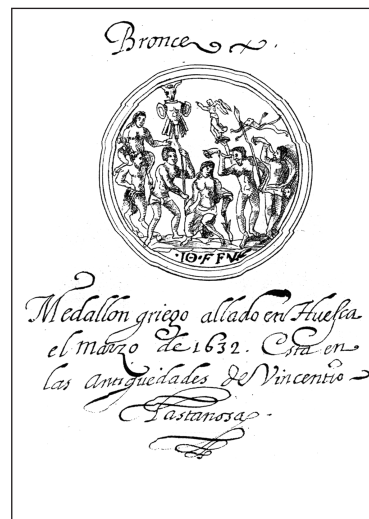 Bronce
·IO·F·F·
Medallon griego allado en Huesca
el marzo de 1632. Esta en
las antiguedades de Vincentio
Lastanosa.